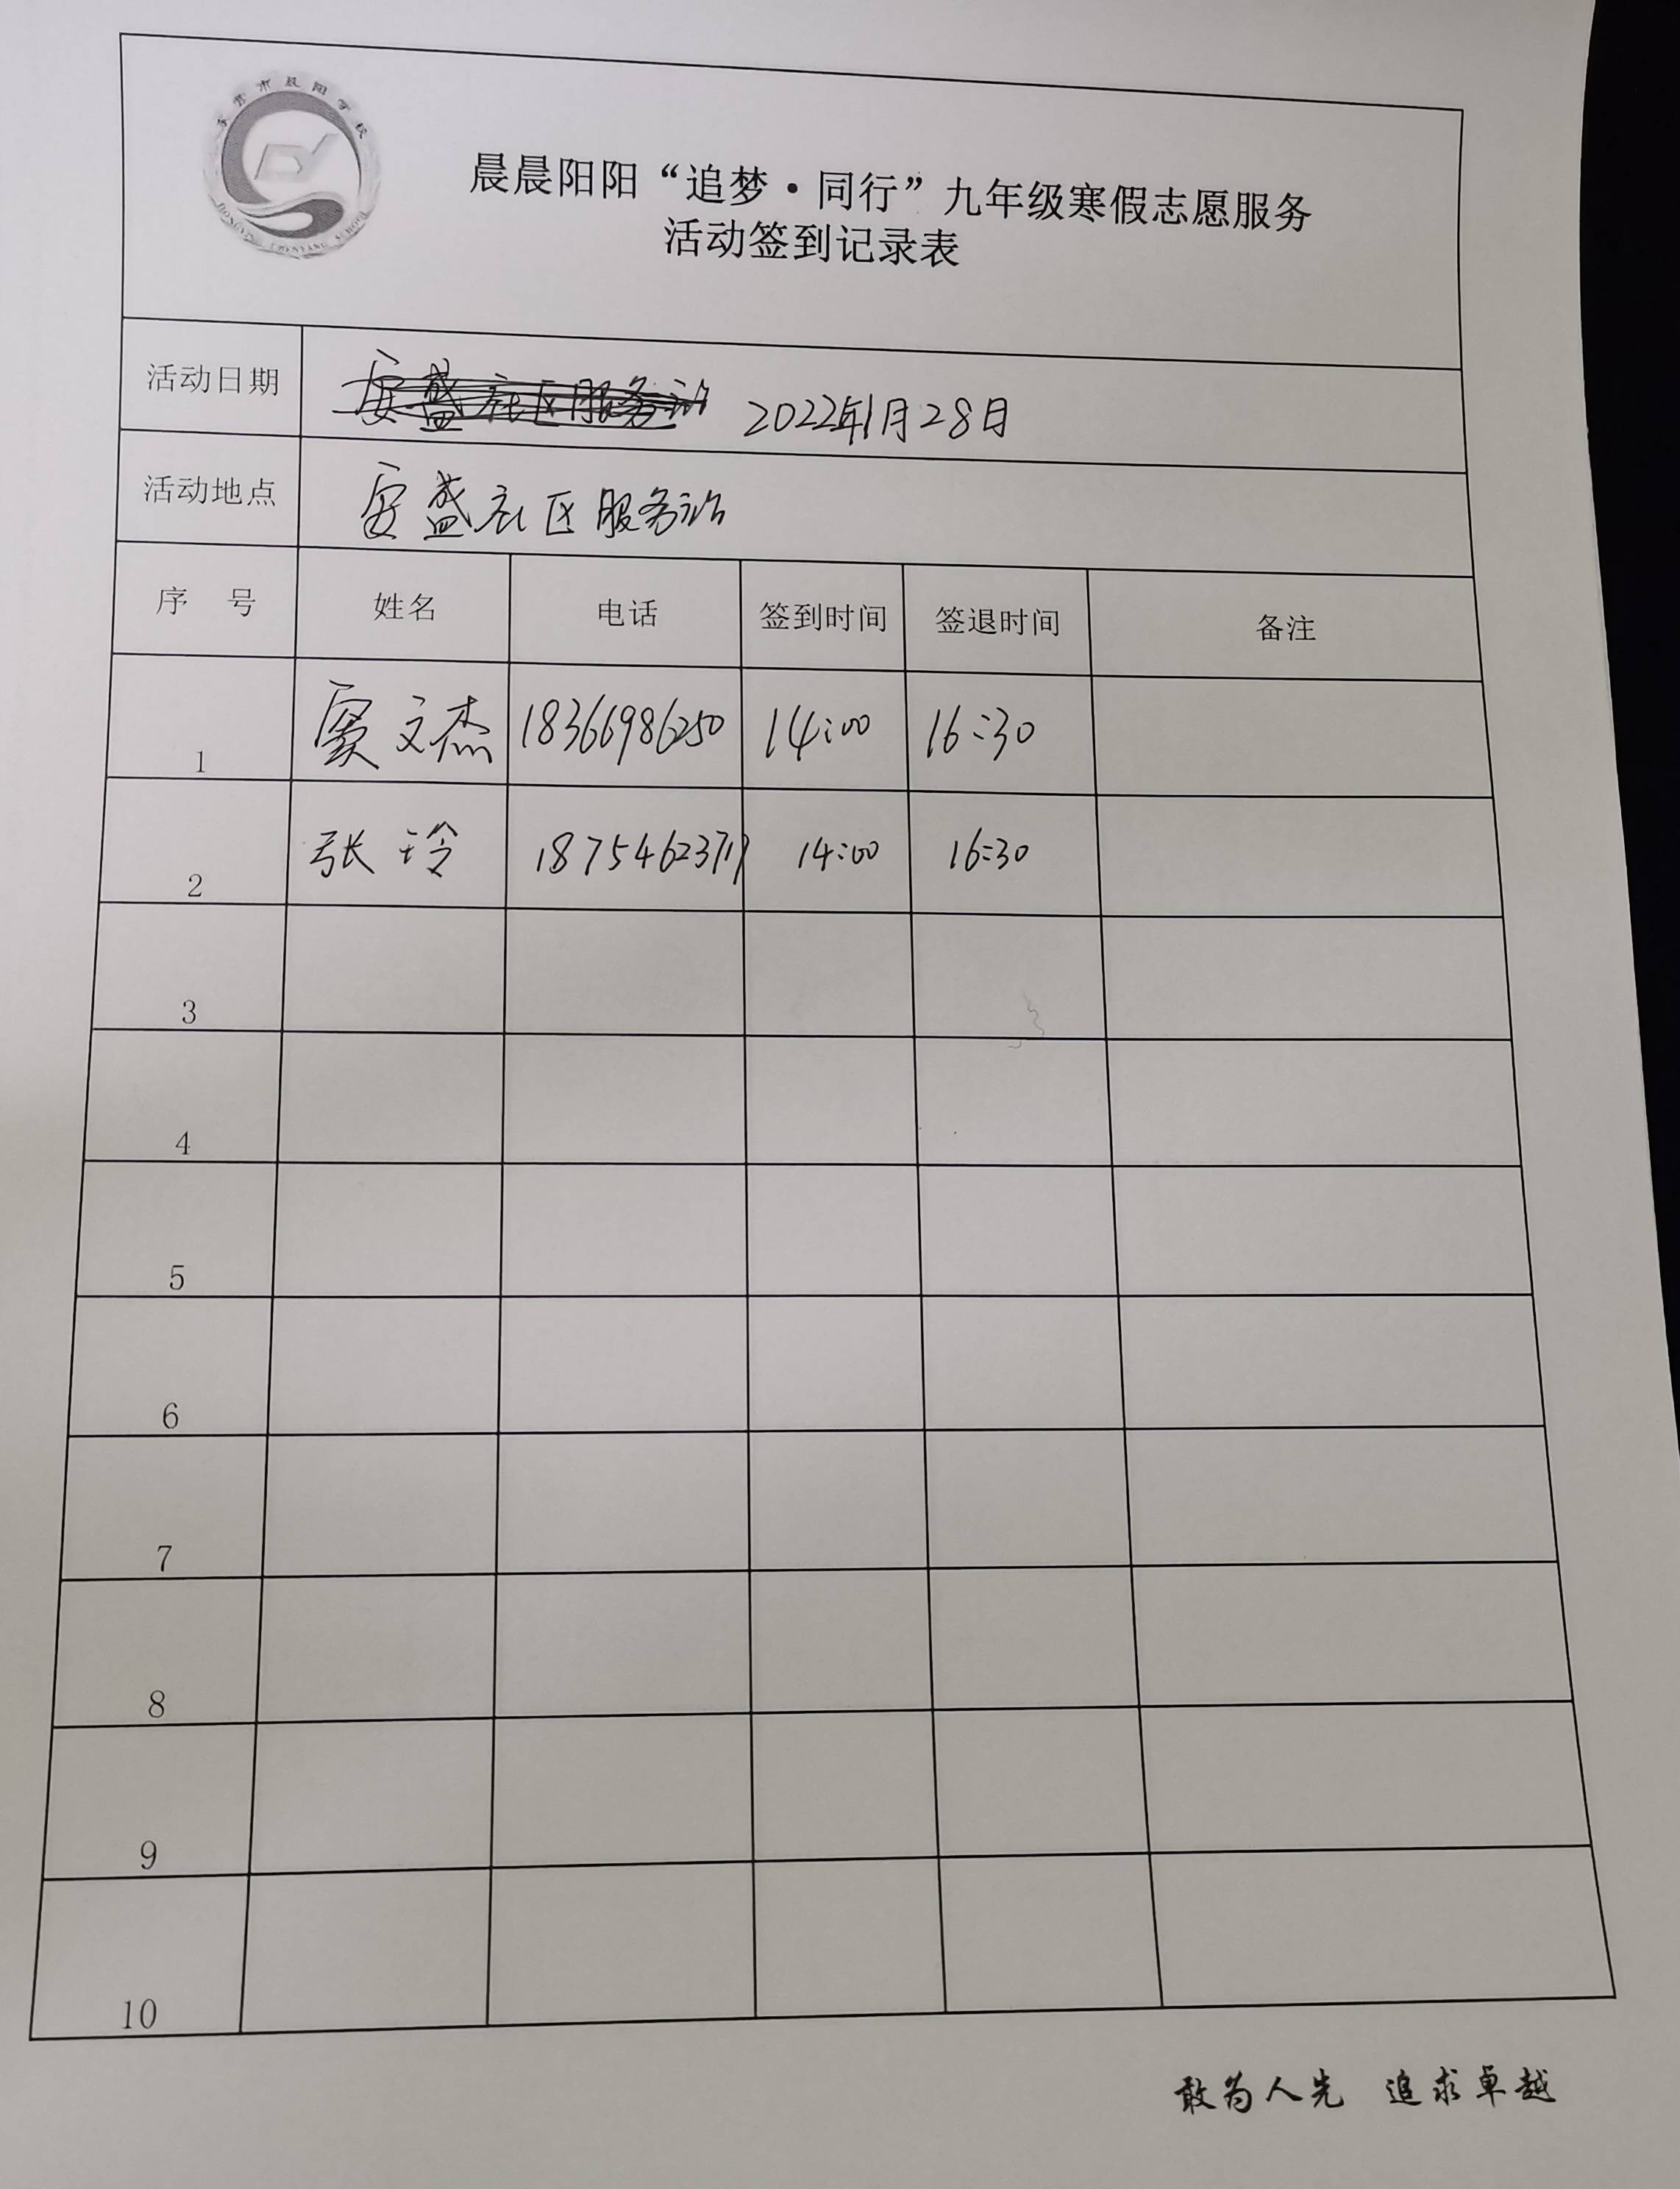 东营市晨阳学校
DONGYING CHENYANG SCHOOL
晨晨阳阳“追梦·同行”九年级寒假志愿服务
活动签到记录表
活动日期 安盛社区服务站 2022年1月28日
活动地点 安盛社区服务站
序 号 姓名 电话 签到时间 签退时间 备注
1 窦文杰 18366986250 14:00 16:30
2 张玲 14:00 16:30
3
4
5
6
7
8
9
10
敢为人先 追求卓越